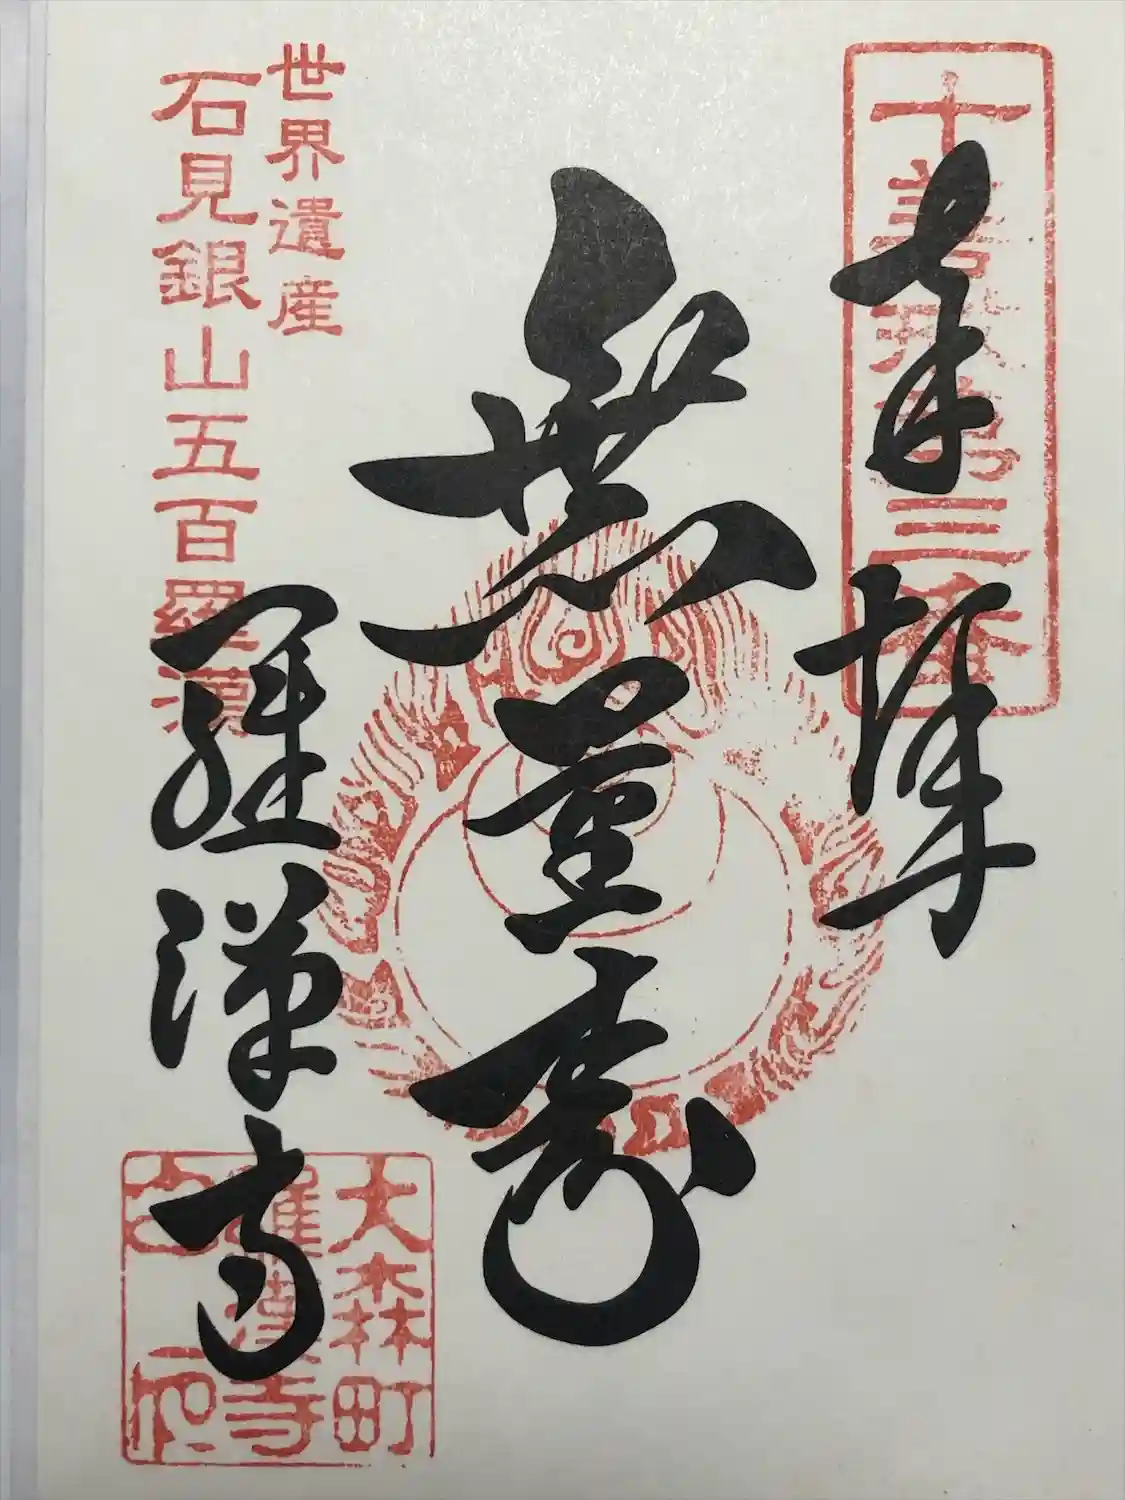 奉拝
十善戒第三番
無量寿
世界遺産
石見銀山五百羅漢
羅漢寺
大森町
羅漢寺
之印